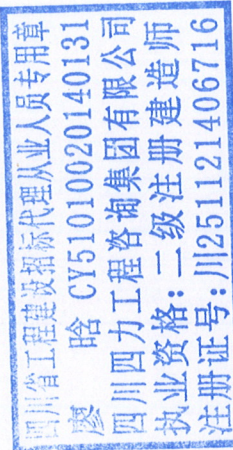 四川省工程建设招标代理从业人员专用章
廖晗 CY51010020140131
四川四力工程咨询集团有限公司
执业资格:二级注册建造师
注册证号:川251121406716